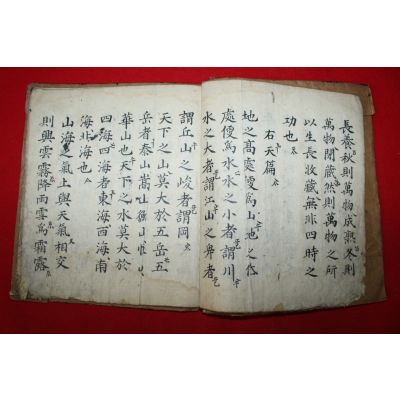 長養秋則萬物成熟冬則
萬物閉藏然則萬物之所
以生長收藏無非四時之
功也
右天篇
地之高處便爲山地之低
處便爲水水之小者謂川
水之大者謂江山之卑者
謂丘山之峻者謂岡
天下之山莫大於五岳五
岳者泰山嵩山衡山恒山
華山也天下之水莫大於
四海四海者東海西海南
海北海也
山海之氣上與天氣相交
則興雲霧降雨雪爲霜露